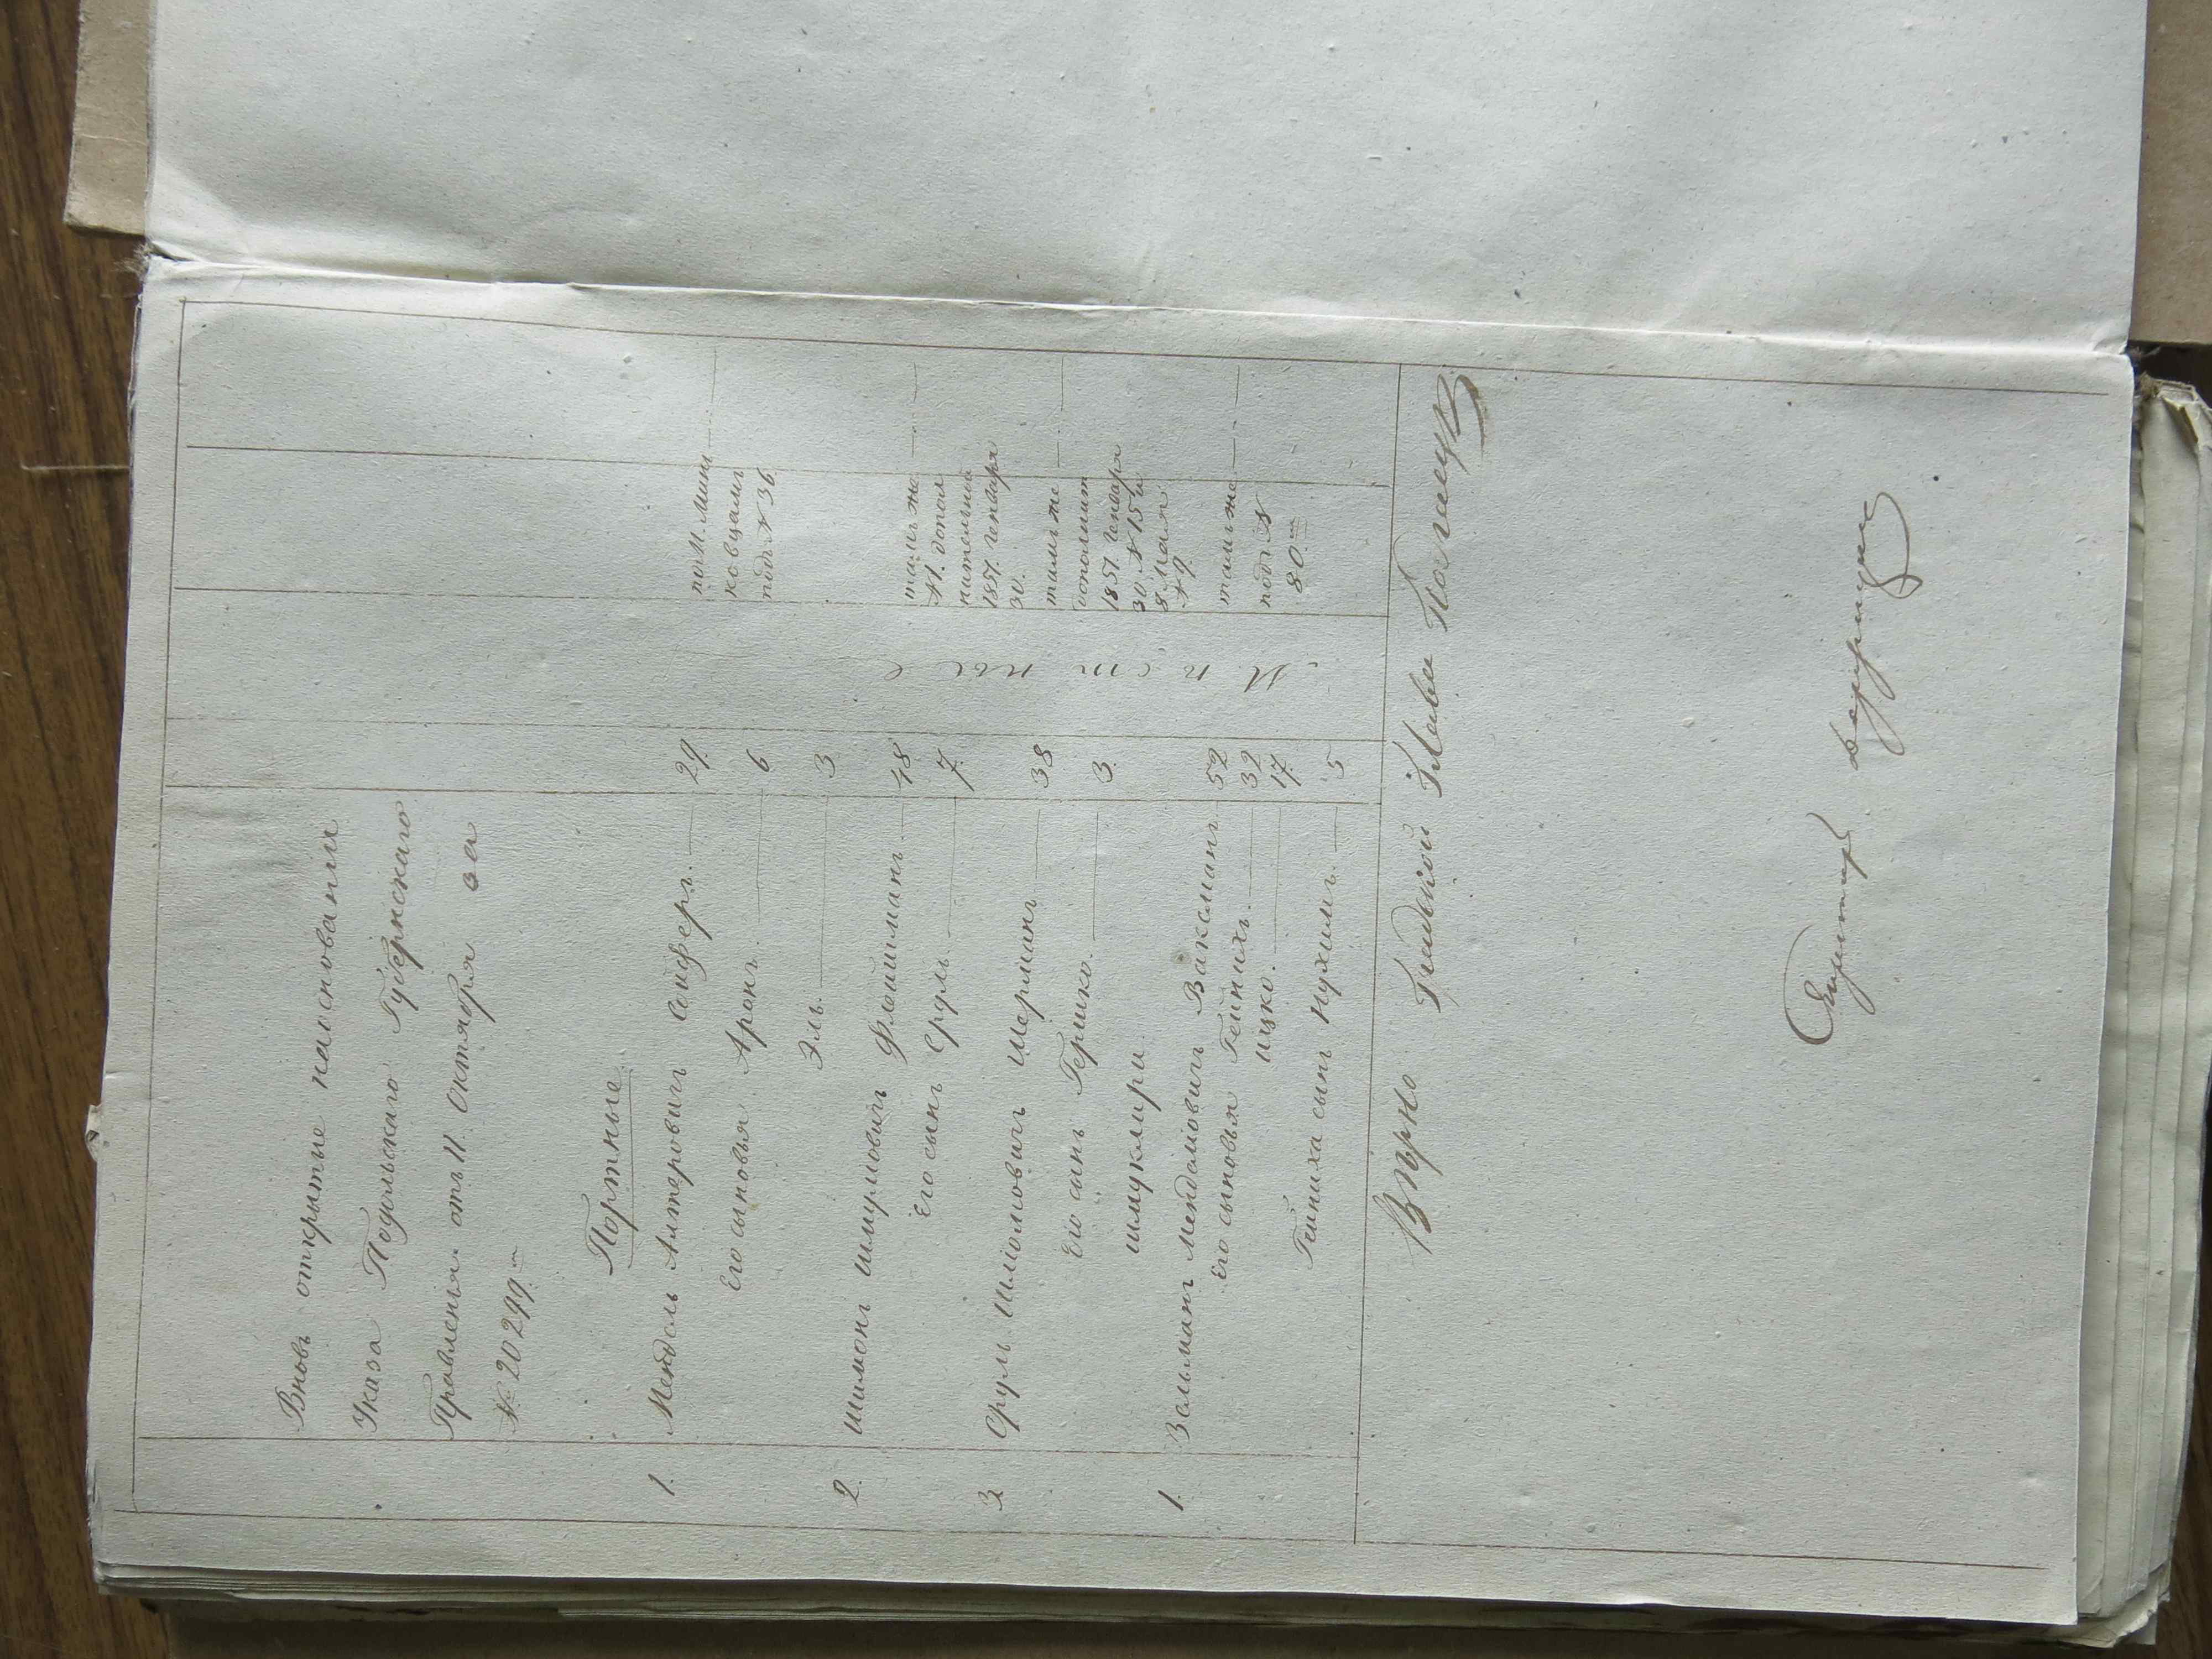 Вновь открытые наоснованіи
Указа Подольскаго Губернскаго
Правленія отъ 11. Октября за
№ 20299.
Портные.
1. Мендель Алтеровичъ Сойферъ. 29. по М. Мин
ковцамъ
подъ № 36
Его сыновья Аронъ. 6
Эль. 3
2. Шимонъ Шмулевичъ Флейшманъ. 48 тамъ же
№ 1. допол
нительной
1851. Генваря
30.
Его сынъ Сруль. 7.
3. Сруль Шліомовичъ Шерманъ 38 тамъ же
дополнит
1851. Генваря
30. № 15 и
8 Мая
№ 9.
Его сынъ Гершко. 3.
Шмуклири
1. Зальманъ Менделіовичъ Ваксманъ 52 тамъ же
подъ №
80.
Его сыновья Гейнихъ. 32
Ицко. 17.
Гейниха сынъ Нухимъ. 5
Мѣстные
Вѣрно: Градской Глава